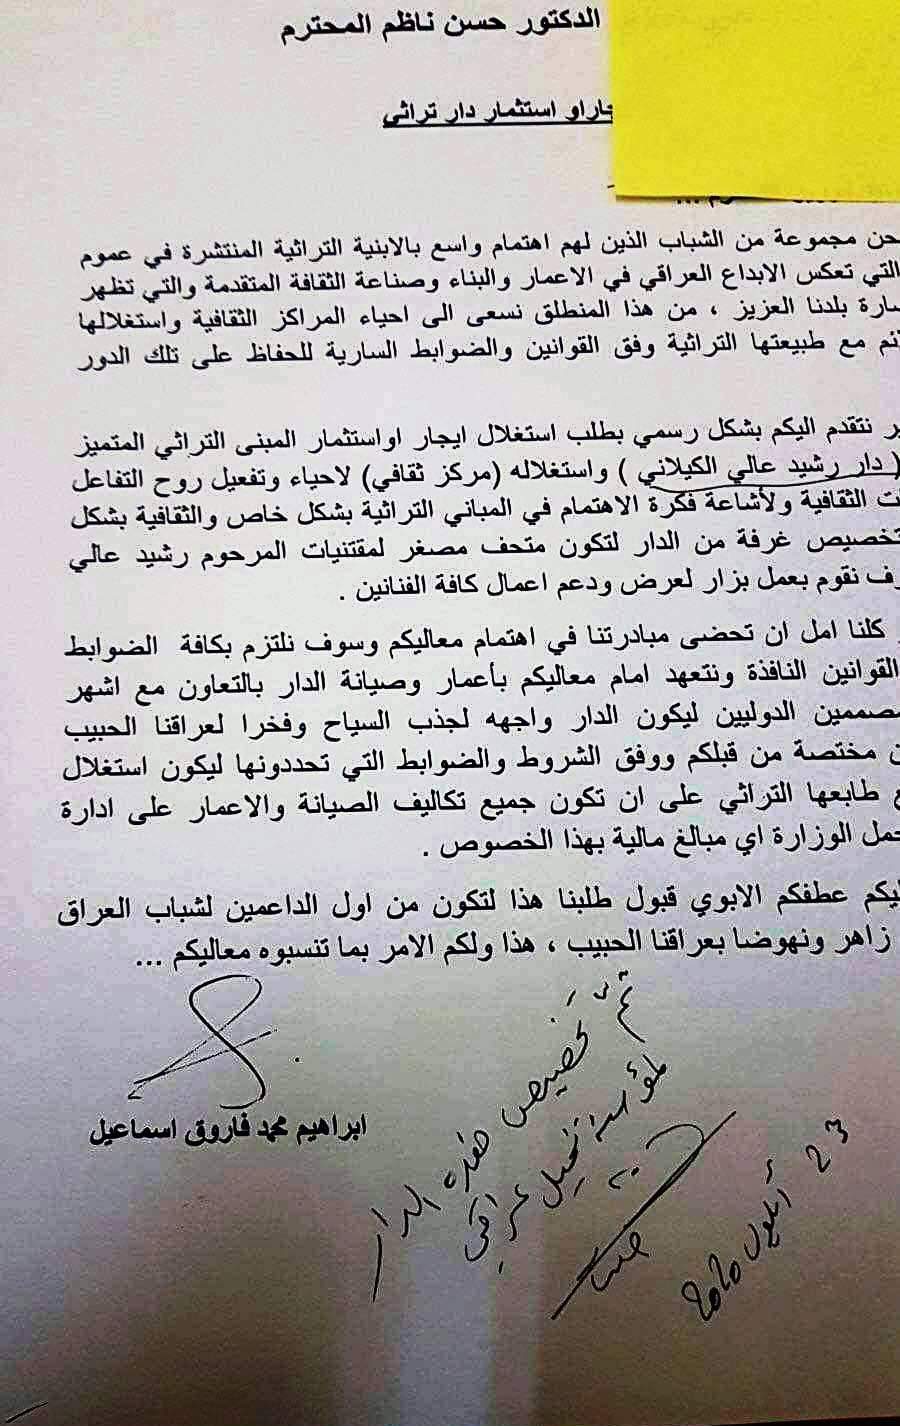 الدكتور حسن ناظم المحترم
استثمار دار تراثي
مجموعة من الشباب الذين لهم اهتمام واسع بالابنية التراثية المنتشرة في عموم
التي تعكس الابداع العراقي في الاعمار والبناء وصناعة الثقافة المتقدمة والتي تظهر
بلدنا العزيز ، من هذا المنطلق نسعى الى احياء المراكز الثقافية واستغلالها
مع طبيعتها التراثية وفق القوانين والضوابط السارية للحفاظ على تلك الدور
نتقدم اليكم بشكل رسمي بطلب استغلال ايجار اواستثمار المبنى التراثي المتميز
( دار رشيد عالي الكيلاني ) واستغلاله (مركز ثقافي) لاحياء وتفعيل روح التفاعل
الثقافية ولأشاعة فكرة الاهتمام في المباني التراثية بشكل خاص والثقافية بشكل
تخصيص غرفة من الدار لتكون متحف مصغر لمقتنيات المرحوم رشيد عالي
نقوم بعمل بزار لعرض ودعم اعمال كافة الفنانين .
كلنا امل ان تحضى مبادرتنا في اهتمام معاليكم وسوف نلتزم بكافة الضوابط
القوانين النافذة ونتعهد امام معاليكم بأعمار وصيانة الدار بالتعاون مع اشهر
الدوليين ليكون الدار واجهه لجذب السياح وفخرا لعراقنا الحبيب
مختصة من قبلكم ووفق الشروط والضوابط التي تحددونها ليكون استغلال
طابعها التراثي على ان تكون جميع تكاليف الصيانة والاعمار على ادارة
الوزارة اي مبالغ مالية بهذا الخصوص .
عطفكم الابوي قبول طلبنا هذا لتكون من اول الداعمين لشباب العراق
زاهر ونهوضا بعراقنا الحبيب ، هذا ولكم الامر بما تنسبوه معاليكم ...
ابراهيم محمد فاروق اسماعيل
تمّ تخصيص هذه الدار
لمؤسسة نخيل عراقي
23 أيلول 2020